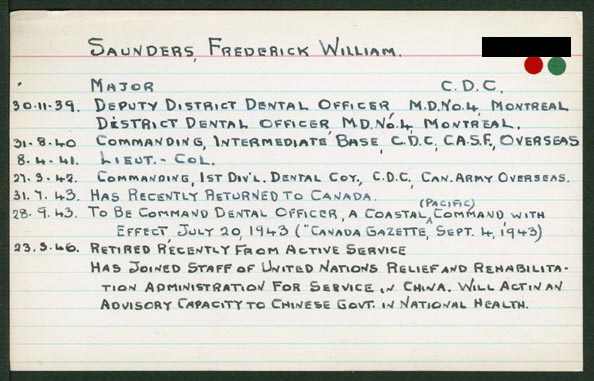 SAUNDERS, FREDERICK WILLIAM.
MAJOR C.D.C.
30.11.39. DEPUTY DISTRICT DENTAL OFFICER, M.D.No.4, MONTREAL
DISTRICT DENTAL OFFICER, M.D.No.4, MONTREAL.
31.8.40 COMMANDING, INTERMEDIATE BASE, C.D.C., C.A.S.F., OVERSEAS
8.4.41. LIEUT.-COL.
27.3.42. COMMANDING, 1ST DIV'L. DENTAL COY., C.D.C., CAN. ARMY OVERSEAS.
31.7.43. HAS RECENTLY RETURNED TO CANADA.
(PACIFIC)
28.9.43. TO BE COMMAND DENTAL OFFICER, A COASTAL COMMAND, WITH
EFFECT, JULY 20, 1943 ("CANADA GAZETTE, SEPT. 4, 1943)
23.3.46. RETIRED RECENTLY FROM ACTIVE SERVICE
HAS JOINED STAFF OF UNITED NATIONS RELIEF AND REHABILITA-
TION ADMINISTRATION FOR SERVICE IN CHINA. WILL ACT IN AN
ADVISORY CAPACITY TO CHINESE GOVT. IN NATIONAL HEALTH.